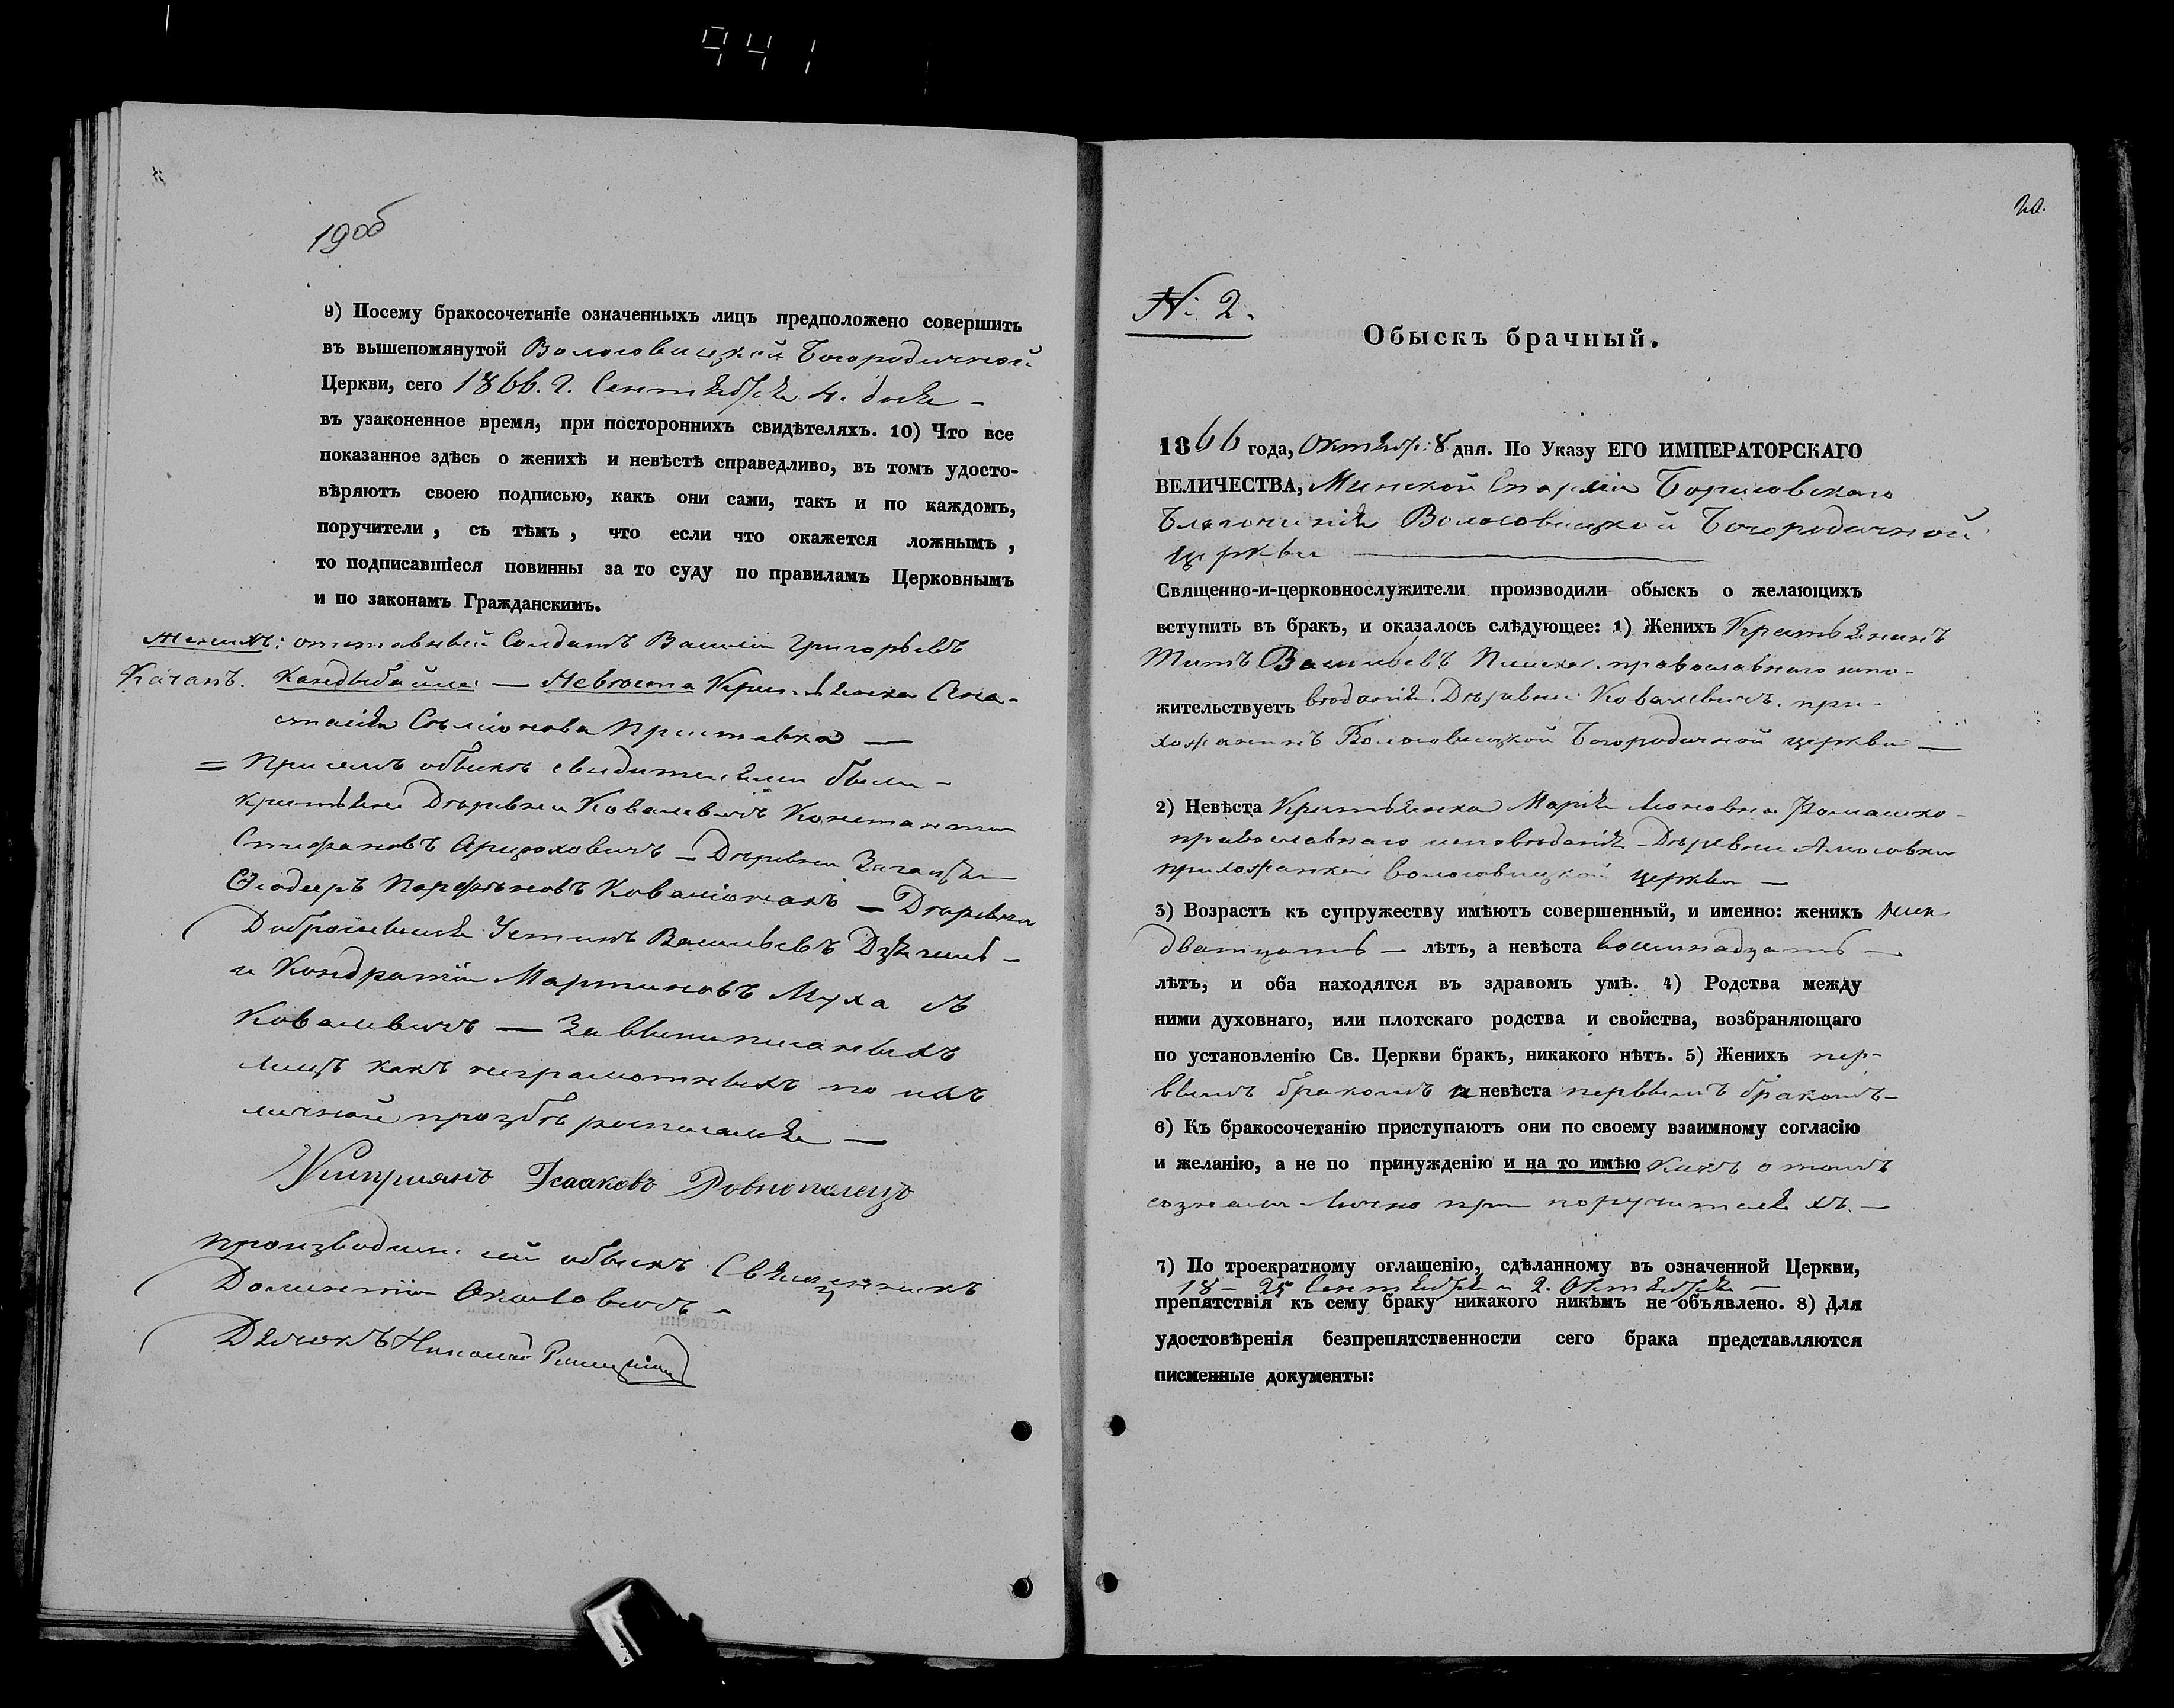 441
19об
9) Посему бракосочетаніе означенныхъ лицъ предположено совершить
въ вышепомянутой Волосовицкой Богородичной
Церкви, сего 1866. г. Сентября 4. дня —
въ узаконенное время, при постороннихъ свидѣтеляхъ. 10) Что все
показанное здѣсь о женихѣ и невѣстѣ справедливо, въ томъ удосто-
вѣряютъ своею подписью, какъ они сами, такъ и по каждомъ,
поручители, съ тѣмъ, что если что окажется ложнымъ,
то подписавшіеся повинны за то суду по правиламъ Церковнымъ
и по законамъ Гражданскимъ.
Женихъ: отставный Солдатъ Василій Григорьевъ
Качанъ. — Невѣста Крестьянка Ана-
стасія Сѣміонова Приставка —
= При семъ обыскѣ свидителями были —
крестьяне Дѣревни Ковалевичъ Константин
Стефановъ — Дѣревни
Ѳеодоръ Парфѣновъ — Дѣревни
Устинъ Васильевъ
и Кондратій Мартиновъ Муха съ
Ковалевичъ — За вышеписаныхъ
лицъ какъ неграмотныхъ по ихъ
личной прозбѣ росписался —
Киприянъ Исааковъ Ровнополецъ
производил. сей обыскъ Священникъ
Дометій Околовичъ —
Дячокъ Николай
20.
№ 2.
Обыскъ брачный.
1866 года, Октябр. 8 дня. По Указу ЕГО ИМПЕРАТОРСКАГО
ВЕЛИЧЕСТВА, Минской Епархіи Борисовскаго
Благочинія Волосовицкой Богородичной
церкви —
Священно-и-церковнослужители производили обыскъ о желающихъ
вступить въ бракъ, и оказалось слѣдующее: 1) Женихъ Крестьянинъ
Титъ Васильевъ православнаго испо-
жительствуетъ вѣданія. Дѣревни Ковалевичъ. при-
хожанинъ Волосовицкой Богородичной церкви —
2) Невѣста Крестьянка Марія
православнаго исповѣданія — Дѣревни Амосовки
прихожанка Волосовицкой церкви —
3) Возрастъ къ супружеству имѣютъ совершенный, и именно: женихъ
дватцать — лѣтъ, а невѣста восимнадцать —
лѣтъ, и оба находятся въ здравомъ умѣ. 4) Родства между
ними духовнаго, или плотскаго родства и свойства, возбраняющаго
по установленію Св. Церкви бракъ, никакого нѣтъ. 5) Женихъ пер-
вымъ бракомъ а невѣста первымъ бракомъ —
6) Къ бракосочетанію приступаютъ они по своему взаимному согласію
и желанію, а не по принужденію и на то имѣю какъ о томъ
сознали лично при поручителяхъ. —
7) По троекратному оглашенію, сдѣланному въ означенной Церкви,
18 — 25 Сентября и 2. Октября —
препятствія къ сему браку никакого никѣмъ не объявлено. 8) Для
удостовѣренія безпрепятственности сего брака представляются
писменные документы: